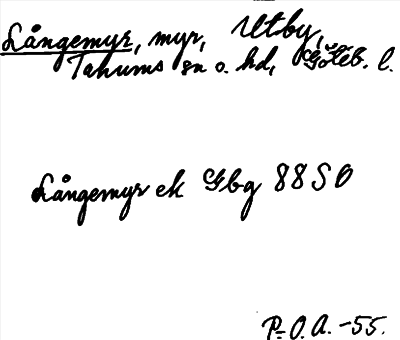 Långemyr, myr, Utby,
Tanums sn o. hd, Göteb. l.
Långemyr ek Gbg 88 SO
P.O.A. -55.